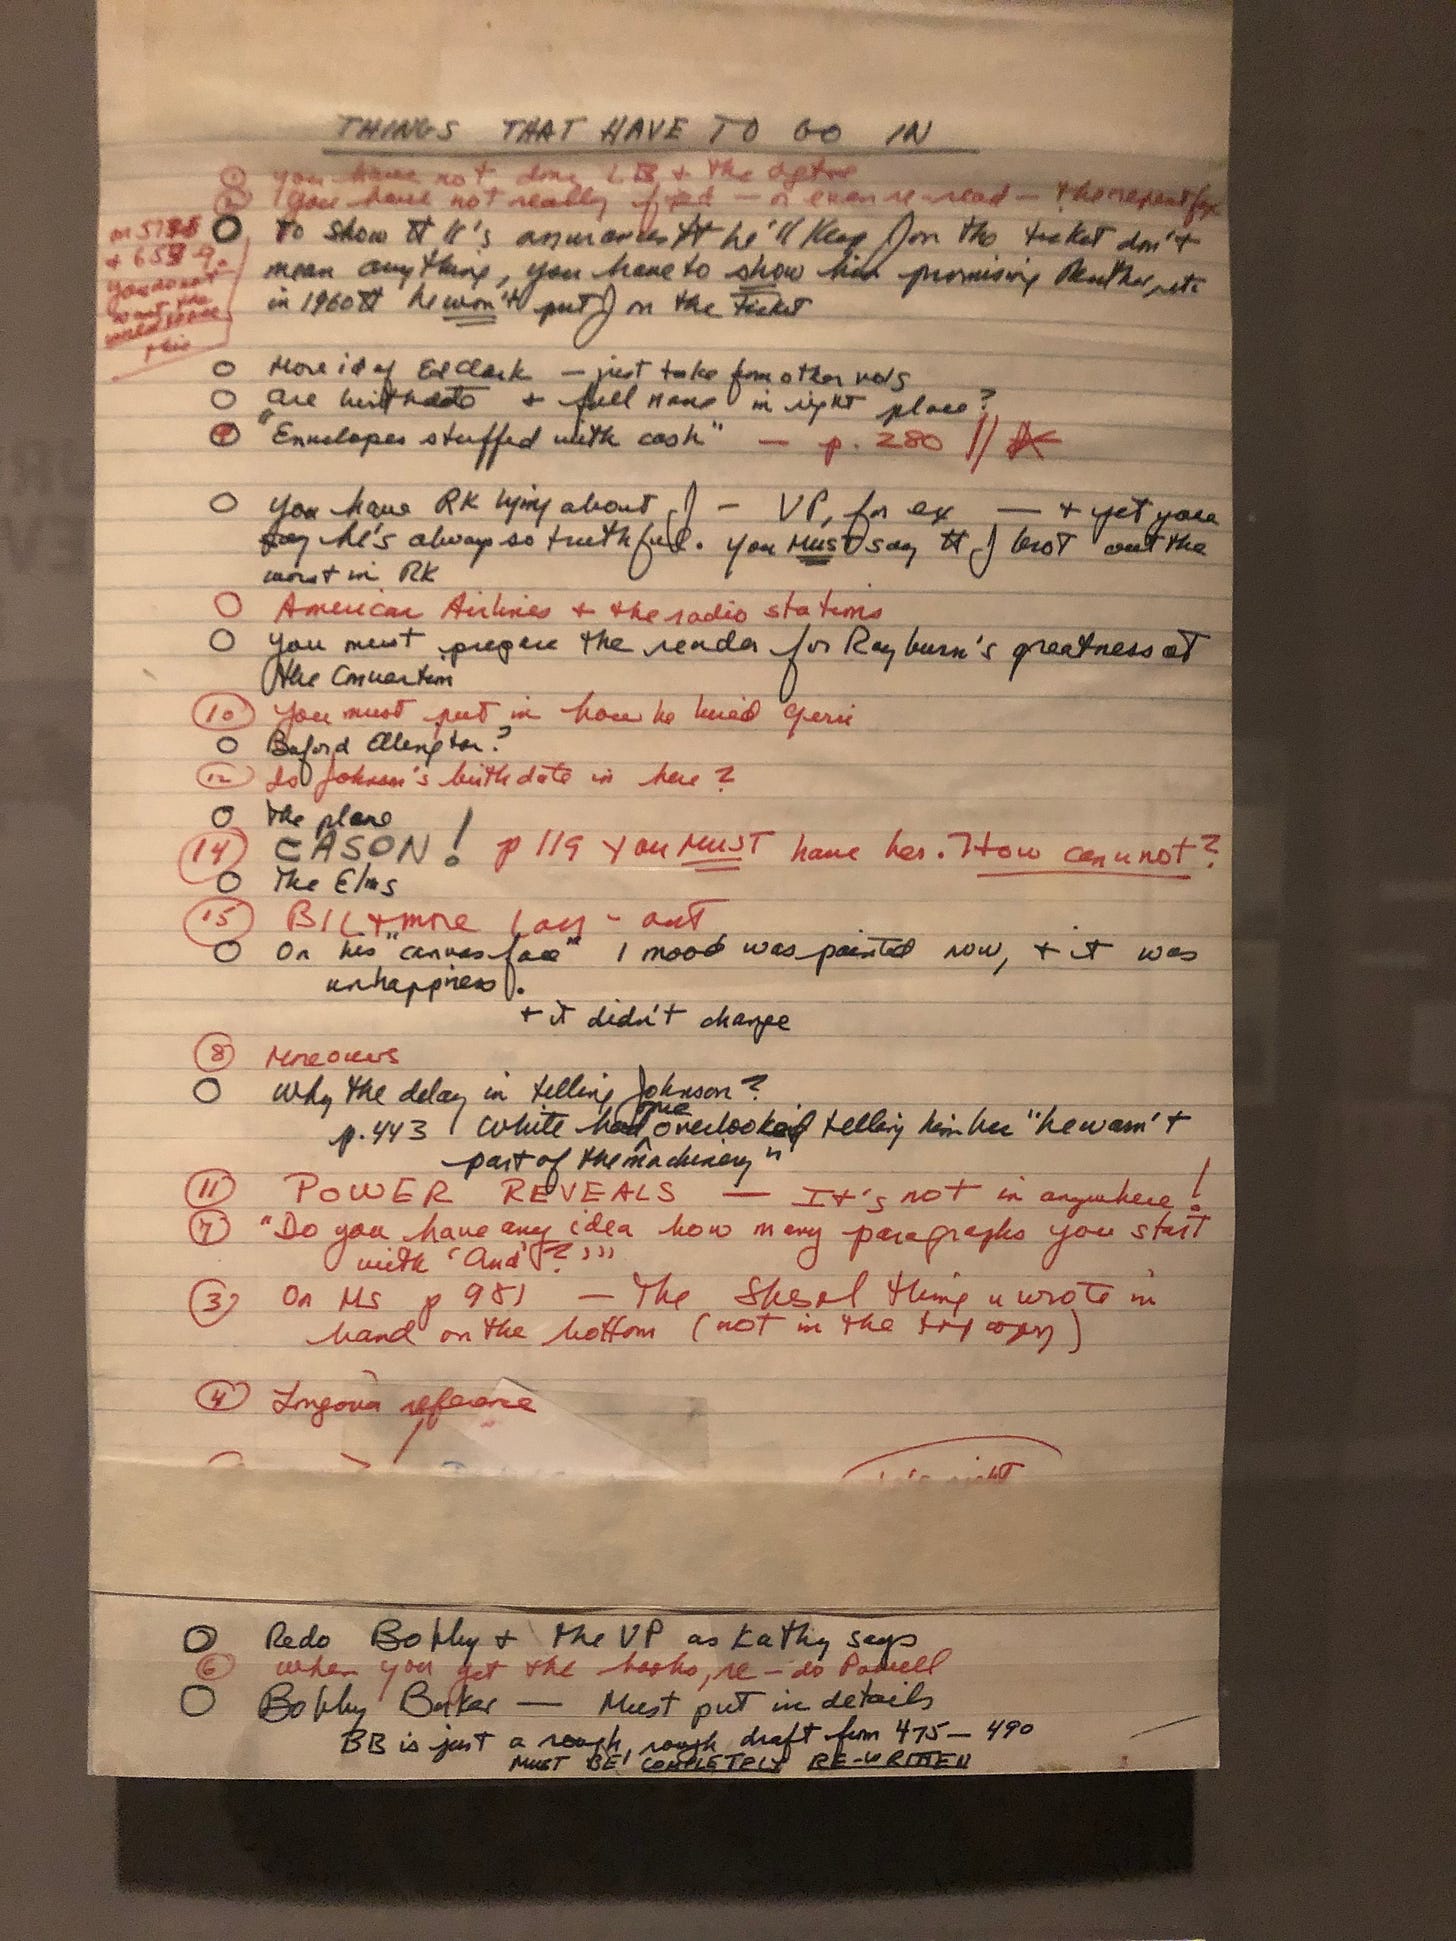 THINGS THAT HAVE TO GO IN
① you have not done LBJ + the
② you have not really fixed — or even re-read — the repent fix
O To show tt K's assurances tt he'll keep J on the ticket don't
mean anything, you have to show him promising Reuther, etc
in 1960 tt he won't put J on the ticket
on
+
you do not
want the
this
O More id of Ed Clark — just take from other vols
O Are birthdate + full name in right place?
⑨ "Envelopes stuffed with cash" — p. 280 //
O You have RK lying about J — VP, for ex — + yet you
say he's always so truthful. You MUST say tt J brot out the
worst in RK
O American Airlines + the radio stations
O You must prepare the reader for Rayburn's greatness at
the Convention
⑩ You must put in how he hired
O Buford Ellington?
⑫ Is Johnson's birthdate in here?
O The plane
⑭ CASON! p 119 You MUST have her. How can u not?
O The Elms
⑮ BILtmore Lay-out
O On his "canvas face" 1 mood was painted now, + it was
unhappiness.
+ it didn't change
⑧ Moreovers
O Why the delay in telling Johnson?
p. 443 White had overlooked telling him bec "he wasn't
part of the machinery"
⑪ POWER REVEALS — It's not in anywhere!
⑦ "Do you have any idea how many paragraphs you start
with 'And'?"
③ On MS p 981 — The Shesol thing u wrote in
hand on the bottom (not in the typ copy)
④ Longoria reference
right
O Redo Bobby + the VP as Kathy says
⑥ When you get the books, re-do Powell
O Bobby Baker — Must put in details
BB is just a rough, rough draft from 475 — 490
MUST BE COMPLETELY RE-WRITTEN